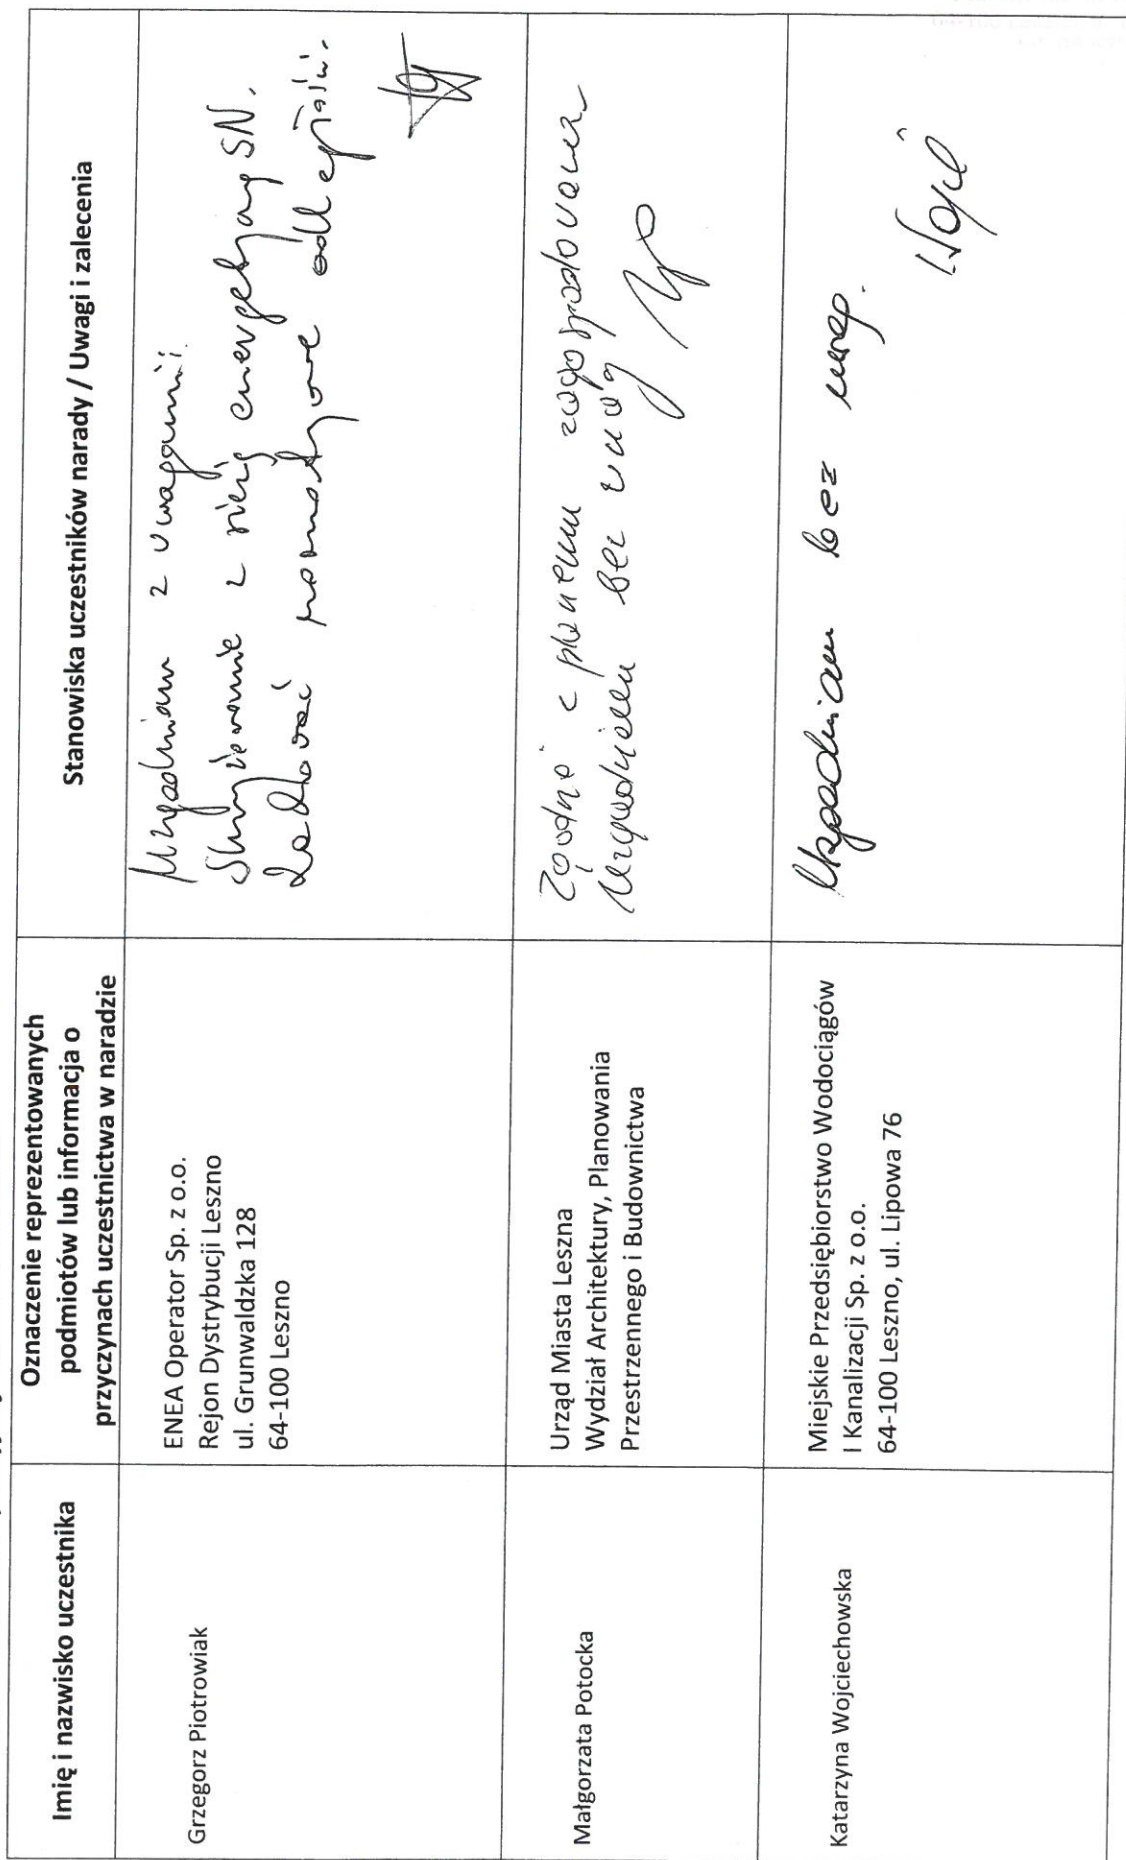 Imię i nazwisko uczestnika
Oznaczenie reprezentowanych
podmiotów lub informacja o
przyczynach uczestnictwa w naradzie
Stanowiska uczestników narady / Uwagi i zalecenia
Grzegorz Piotrowiak
ENEA Operator Sp. z o.o.
Rejon Dystrybucji Leszno
ul. Grunwaldzka 128
64-100 Leszno
Uzgadniam z uwagami:
Skrzyżowanie z siecią energetyczną SN.
Zachować normatywne odległości.
Małgorzata Potocka
Urząd Miasta Leszna
Wydział Architektury, Planowania
Przestrzennego i Budownictwa
Zgodne z planem zagospodarowania
Uzgodniłam bez uwag
Katarzyna Wojciechowska
Miejskie Przedsiębiorstwo Wodociągów
I Kanalizacji Sp. z o.o.
64-100 Leszno, ul. Lipowa 76
Uzgadniam bez uwag.